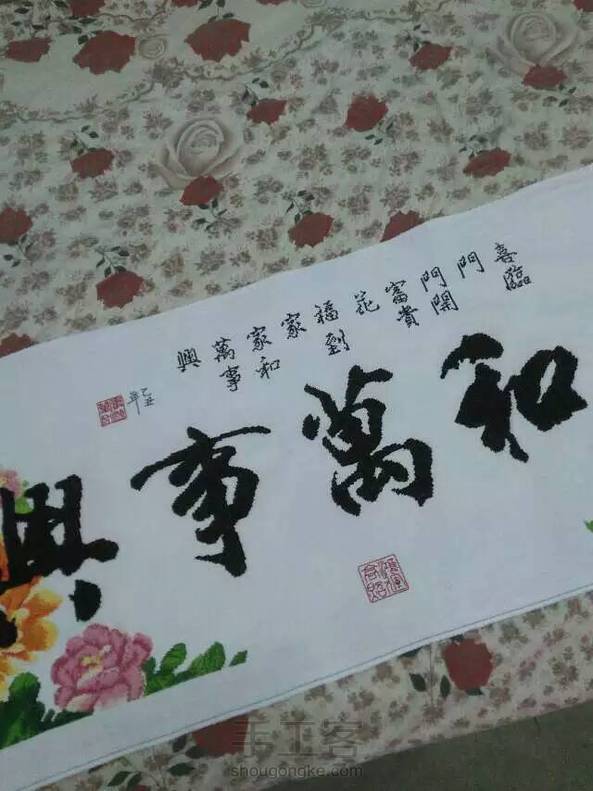 喜臨
門
門開
富貴
花
福到
家
家和
萬事
興
己丑
年
和萬事興
手工客
shougongke.com